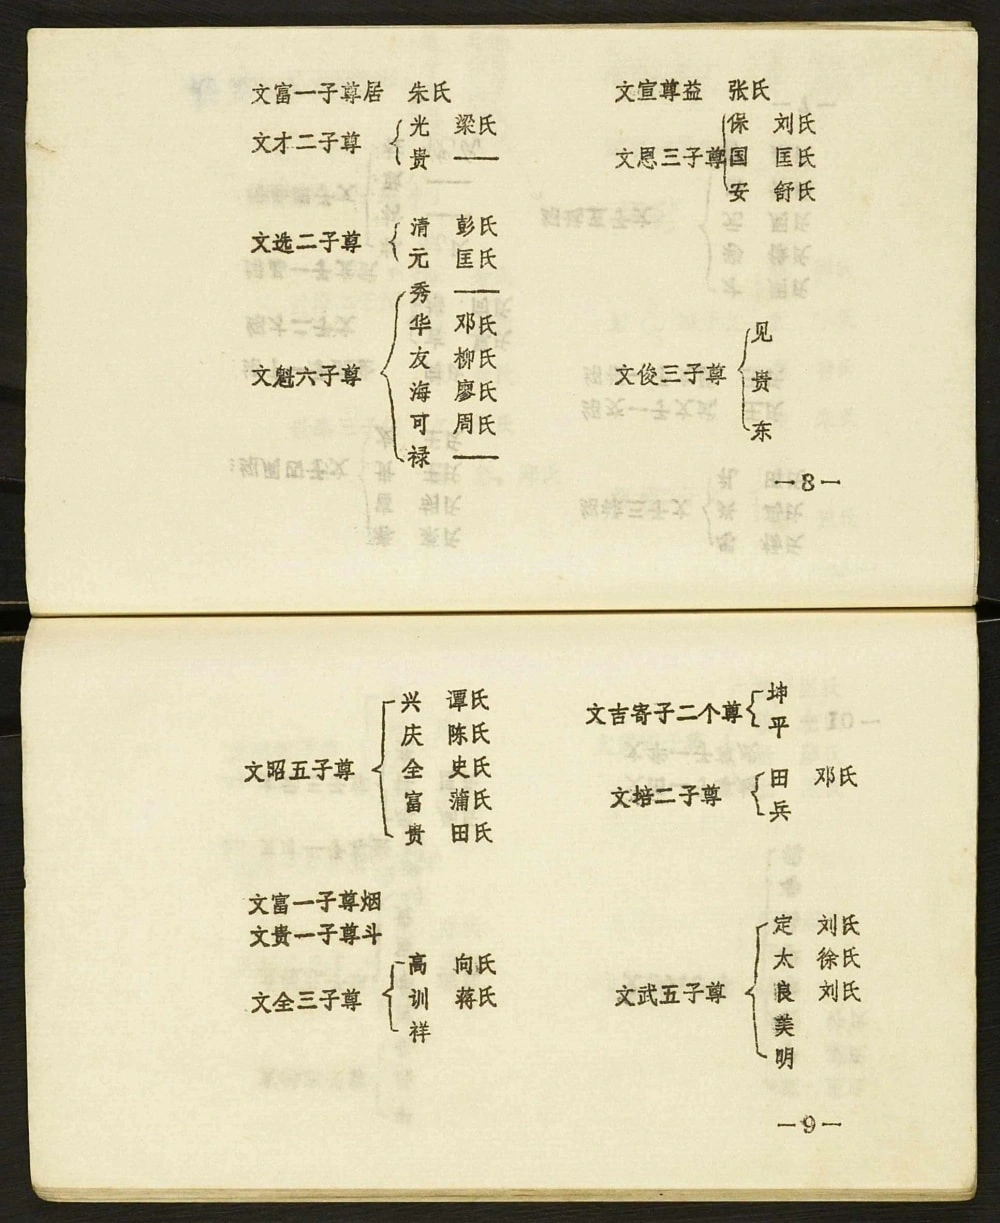 文富一子尊居 朱氏
文才二子尊
光 梁氏
贵 ——
文选二子尊
清 彭氏
元 匡氏
文魁六子尊
秀 ——
华 邓氏
友 柳氏
海 廖氏
可 周氏
禄 ——
文宣尊益 张氏
文恩三子尊
保 刘氏
国 匡氏
安 舒氏
文俊三子尊
见
贵
东
—8—
文昭五子尊
兴 谭氏
庆 陈氏
全 史氏
富 蒲氏
贵 田氏
文富一子尊烟
文贵一子尊斗
文全三子尊
高 向氏
训 蒋氏
祥
文吉寄子二个尊
坤
平
文培二子尊
田 邓氏
兵
文武五子尊
定 刘氏
太 徐氏
良 刘氏
美
明
—9—